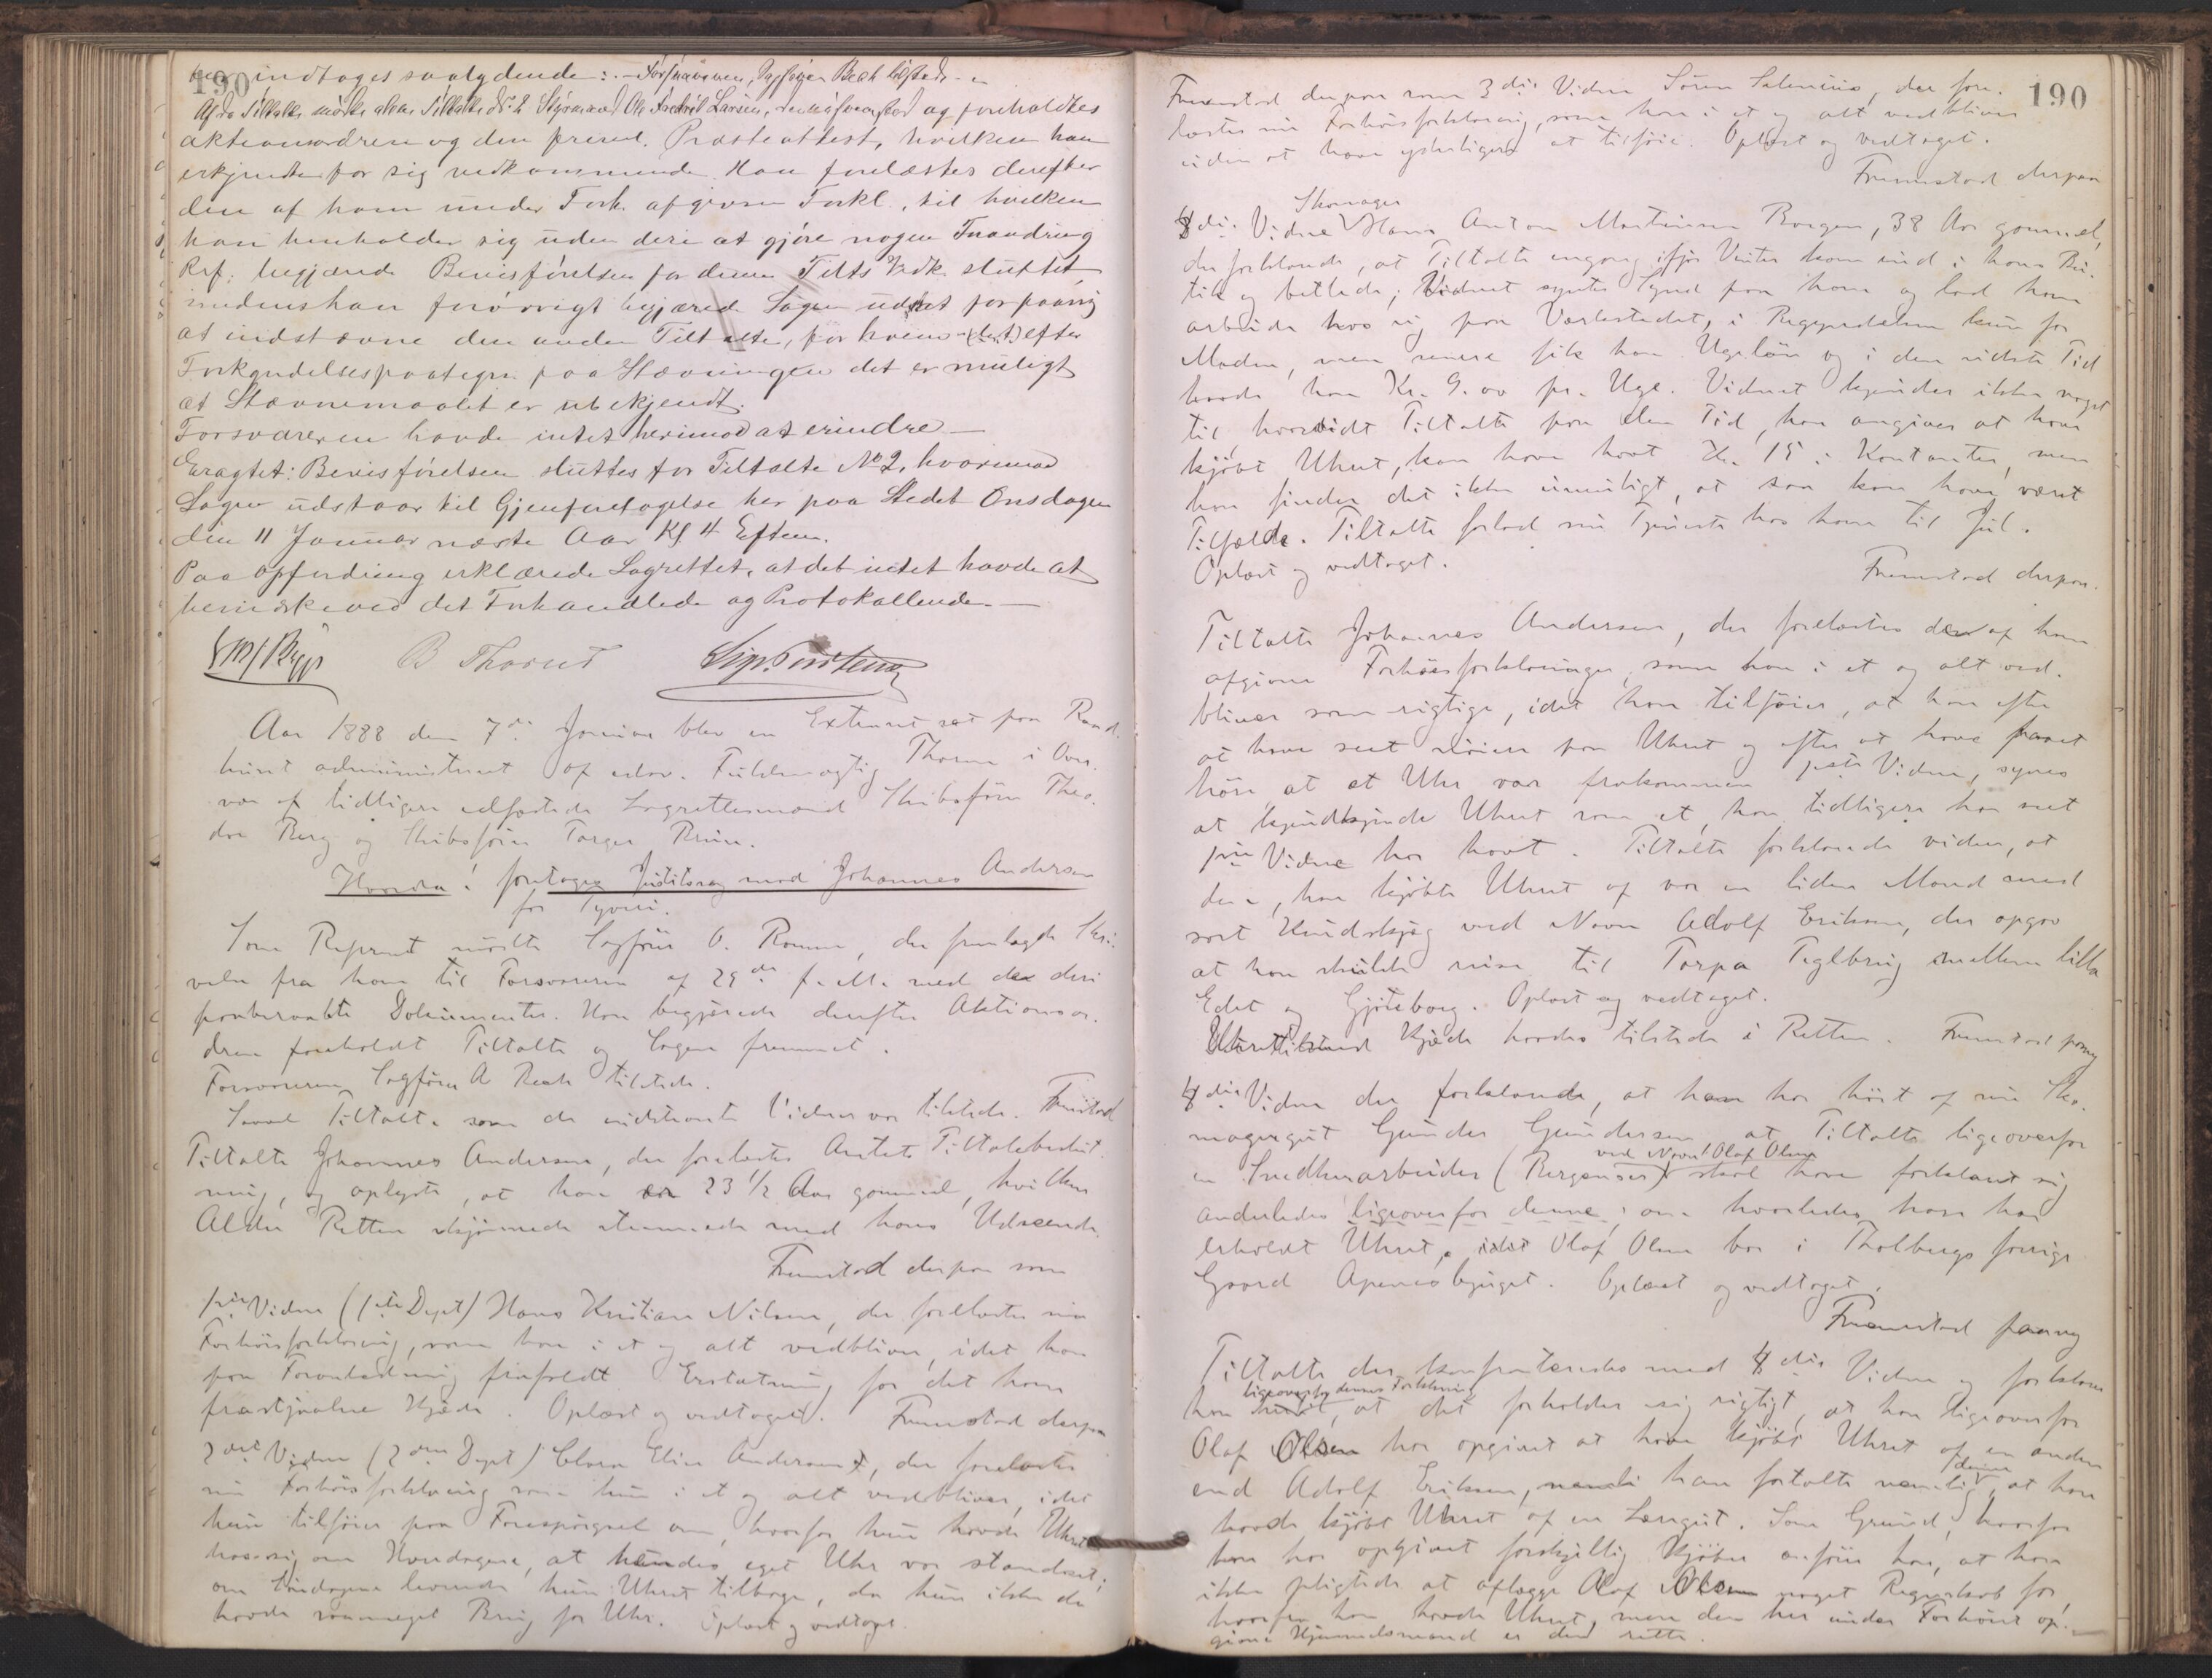 190
indtoges saalydende: – Forsvareren, Sagfører Bech tilstede –
Af de Tiltalte mødte alene Tiltalte No 2 Styrmand Ole Fredrik Larsen, fremstod og foreholdtes
aktionsordren og den præsent. Præsteattest, hvilken han
erkjendte for sig vedkommende. Han forelæstes derefter
den af ham under Forh. afgivne Forkl., til hvilken
han henholder sig uden deri at gjøre nogen Forandring
Ref. begjærede Bevisførelsen for denne Tilts Vedk. sluttet,
medens han forøvrigt begjærede Sagen udsat for paany
at indstævne den anden Tiltalte, for hvem (det) efter
Forkyndelsespaategn. paa Stævningen det er muligt
at Stævnemaalet er ubekjendt.
Forsvareren havde intet herimod at erindre –
Eragtet: Bevisførelsen sluttes for Tiltalte No 2, hvorimod
Sagen udstaar til Gjenforetagelse her paa Stedet Onsdagen
den 11 Januar næste Aar Kl 4 Efterm.
Paa opfordring erklærede Lagrettet, at det intet havde at
bemærke ved det Forhandlede og Protokollerede. –
B Thorne
Aar 1888 den 7de Januar blev en Extraret sat paa Raad-
huset administreret af edsv. Fuldmægtig Thorne i Over-
vær af tidligere edfæstede Lagrettesmænd Skibsfører Theo-
dor Berg og Skibsfører Torger Bruun.
Hvorda: foretoges Justitssag mod Johannes Andersen
for Tyveri.
Som Referent mødte Sagfører O. Romme, der fremlagde Skri-
velse fra ham til Forsvareren af 29de f. M. med de deri
paaberaabte Dokumenter. Han begjærede derefter Aktionsor-
dren foreholdt Tiltalte og Sagen fremmet.
Forsvareren Sagfører A Bech tilstede.
Saavel Tiltalte som de indstævnte Vidner var tilstede. Fremstod
Tiltalte Johannes Andersen, der forelæstes Amtets Tiltalebeslut-
ning, og oplyste, at han er 23 1/2 Aar gammel, hvilken
Alder Retten skjønnede stemmede med hans Udseende
Fremstod derpaa som
1ste Vidne (1ste Dept) Hans Kristian Nilsen, der forelæstes sin
Forhørsforklaring, som han i et og alt vedbliver, idet han
paa Foranledning frafaldt Erstatning for det ham
frastjaalne Kjæde. Oplæst og vedtaget. Fremstod derpaa
2det Vidne (2den Dept) Clara Elise Andersen, der forelæstes
sin Forhørsforklaring som hun i et og alt vedbliver, idet
hun tilføier paa Forespørgsel om, hvorfor hun havde Uhret
hos sig om Hverdagene, at hendes eget Uhr var standset;
om Søndagene leverede hun Uhret tilbage, da hun ikke da
havde saameget Brug for Uhr. Oplæst og vedtaget.
190
Fremstod derpaa som 3die Vidne Søren Salenius, der fore-
læstes sin Forhørsforklaring, som han i et og alt vedbliver
uden at have yderligere at tilføie. Oplæst og vedtaget.
Fremstod derpaa
Skomager
4de Vidne Hans Anton Martinsen Borgen, 38 Aar gammel,
der forklarede, at Tiltalte engang ifjor Vinter kom ind i hans Bu-
tik og betlede; Vidnet syntes Synd paa ham og lod ham
arbeide hos sig paa Værkstedet, i Begyndelsen kun for
Maden, men senere fik han Ugeløn og i den sidste Tid
havde han Kr. 9.00 pr. Uge. Vidnet kjender ikke noget
til hvorvidt Tiltalte paa den Tid, han angiver at have
kjøbt Uhret, kan have havt Kr. 15 i Kontanter, men
han finder det ikke umuligt, at saa kan have været
Tilfælde. Tiltalte forlod sin Tjeneste hos ham til Jul.
Oplæst og vedtaget.
Fremstod derpaa.
Tiltalte Johannes Andersen, der forelæstes den af ham
afgivne Forhørsforklaringer, som han i et og alt ved-
bliver som rigtige, idet han tilføier, at han efter
at have seet nøiere paa Uhret og efter at have faaet
høre, at et Uhr var frakommen 1ste Vidne, synes
at kjende Uhret som et, han tidligere har seet
1ste Vidne har havt. Tiltalte forklarede videre, at
den, han kjøbte Uhret af var en liden Mand med
sort Kindskjæg ved Navn Adolf Eriksen, der opgav
at han skulde reise til Torpa Teglbrug mellem Lilla
Edet og Gjøteborg. Oplæst og vedtaget.
Kjæde havdes tilstede i Retten. Fremstod paany
4de Vidne der forklarede, at han har hørt af sin Sko-
magergut Gunder Gundersen, at Tiltalte ligeoverfor
ved Navn Olaf Olsen
en Snedkerarbeider (Bergenser) skal have forklaret sig
anderledes ligeoverfor denne, om hvorledes han har
erholdt Uhret, idet Olaf Olsen bor i Tholbugs forrige
Gaard Apenesbjerget. Oplæst og vedtaget.
Fremstod paany
Tiltalte der konfronteredes med 4de Vidne og forklarer
ligeoverfor dennes Forklaring
han, at det forholder sig rigtigt, at han ligeoverfor
Olaf Olsen har opgivet at have kjøbt Uhret af en anden
end Adolf Eriksen, han fortalte nemlig denne, at han
havde kjøbt Uhret af en Læregut. Som Grund, hvorfor
han har opgivet forskjellig Kjøber anfører han, at han
ikke pligtede at aflægge Olaf Olsen noget Regnskab for,
hvorfra han havde Uhret, men den her under Forhøret op-
givne Hjemmelsmand er den rette.